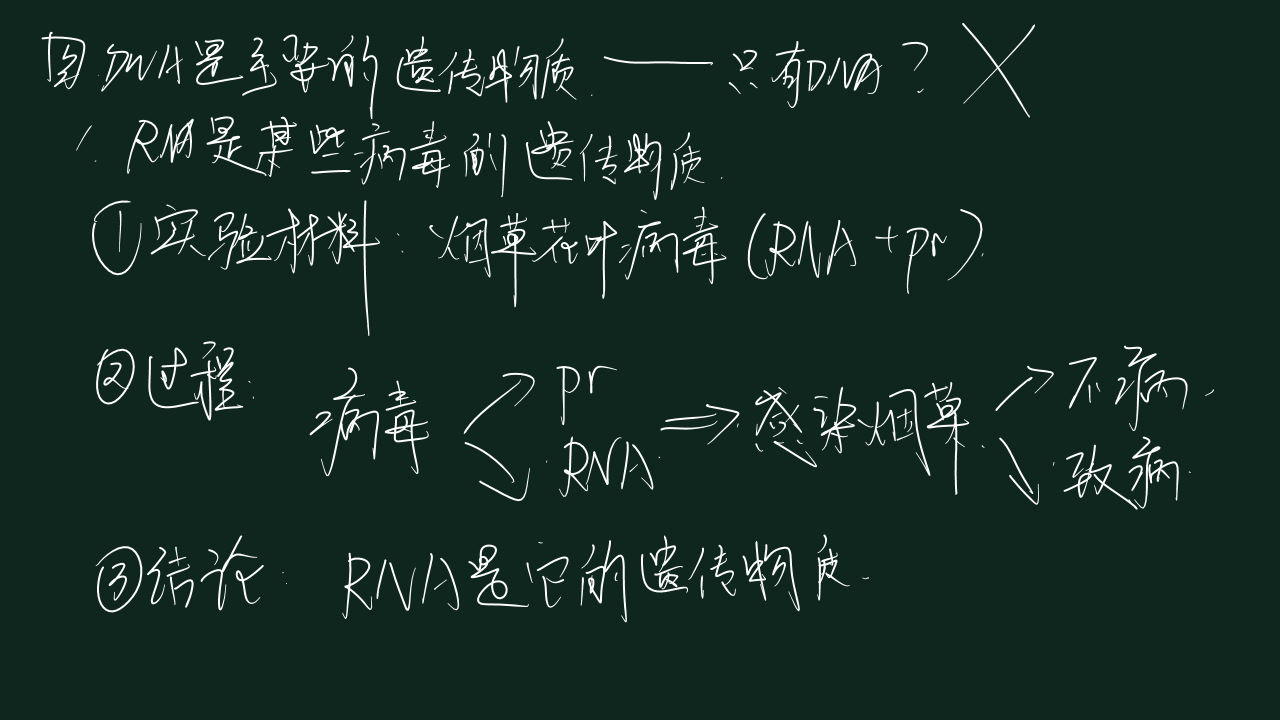 四.DNA是主要的遗传物质. —— 只有DNA? ×
1. RNA是某些病毒的遗传物质.
①实验材料: 烟草花叶病毒(RNA+pr).
②过程:
病毒 pr ⇒ 感染烟草 → 不病.
RNA → 致病.
③结论: RNA是它的遗传物质.